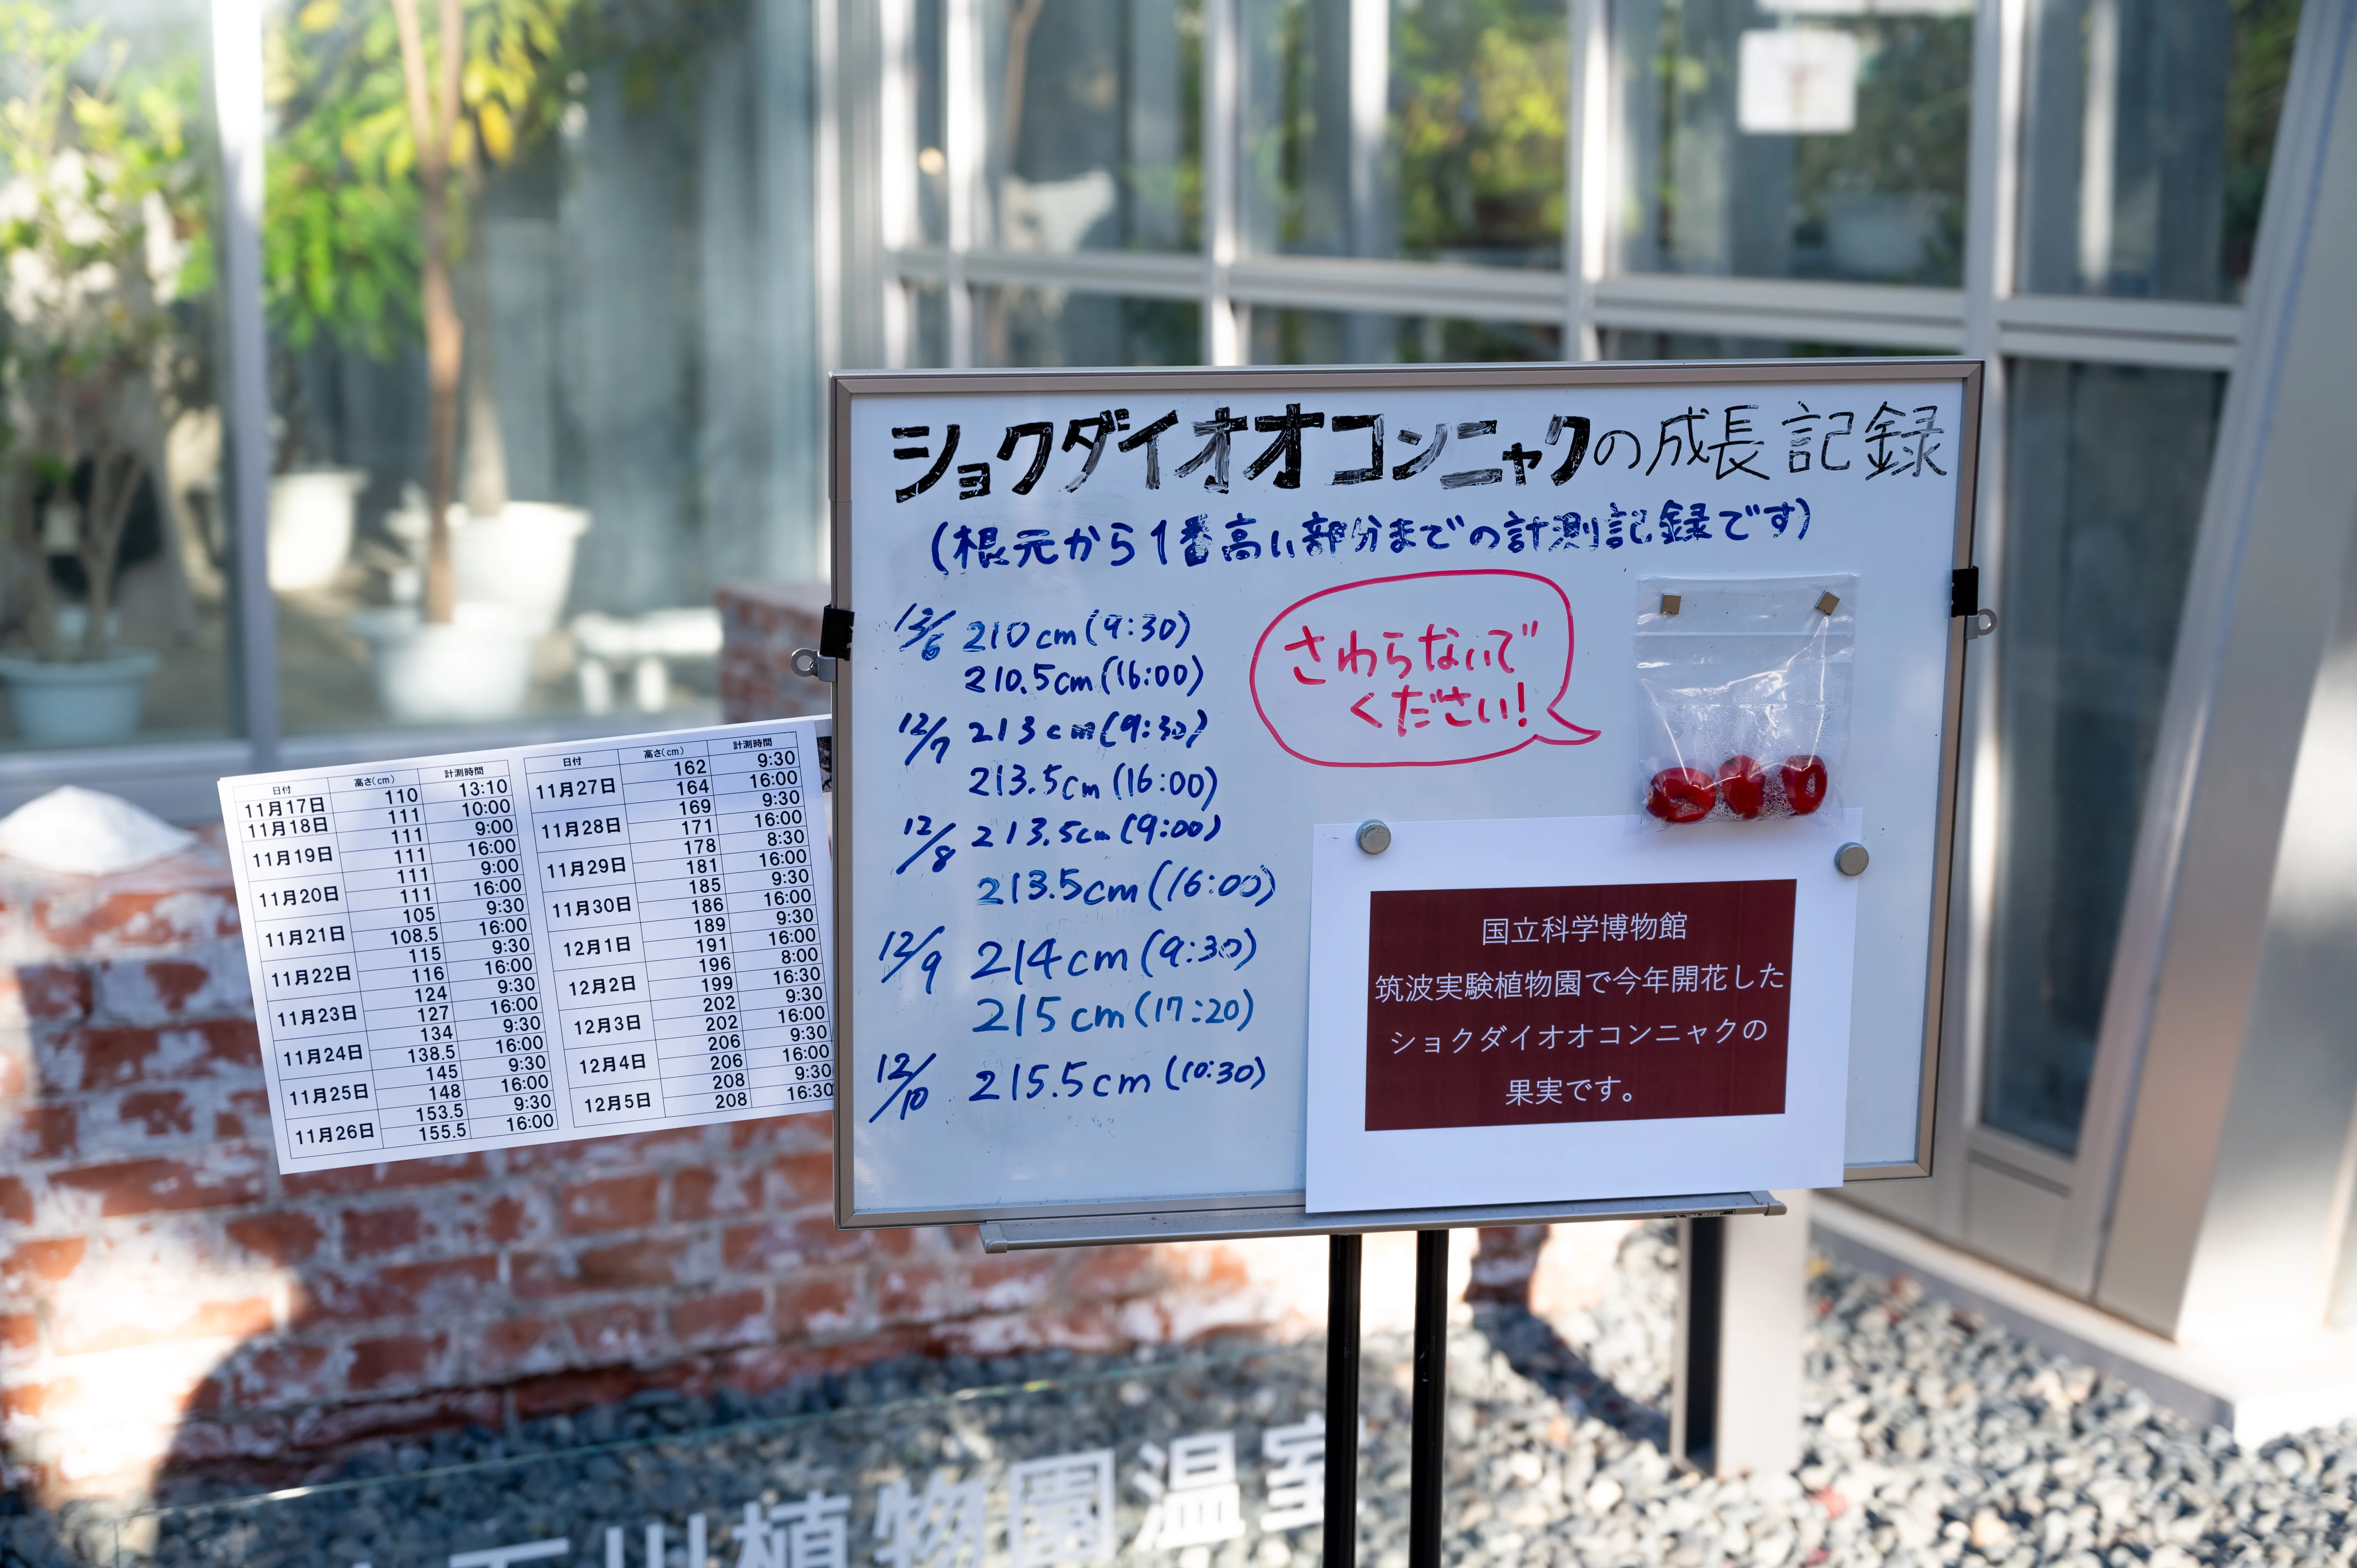 ショクダイオオコンニャクの成長記録
(根元から1番高い部分までの計測記録です)
12/6 210cm(9:30)
210.5cm(16:00)
12/7 213cm(9:30)
213.5cm(16:00)
12/8 213.5cm(9:00)
213.5cm(16:00)
12/9 214cm(9:30)
215cm(17:20)
12/10 215.5cm(10:30)
さわらないで
ください!
国立科学博物館
筑波実験植物園で今年開花した
ショクダイオオコンニャクの
果実です。
日付 高さ(cm) 計測時間
11月17日 110 13:10
11月18日 111 10:00
11月19日 111 9:00
111 16:00
11月20日 111 9:00
111 16:00
11月21日 105 9:30
108.5 16:00
11月22日 115 9:30
116 16:00
11月23日 124 9:30
127 16:00
11月24日 134 9:30
138.5 16:00
11月25日 145 9:30
148 16:00
11月26日 153.5 9:30
155.5 16:00
日付 高さ(cm) 計測時間
11月27日 162 9:30
164 16:00
11月28日 169 9:30
171 16:00
11月29日 178 8:30
181 16:00
11月30日 185 9:30
186 16:00
12月1日 189 9:30
191 16:00
12月2日 196 8:00
199 16:30
12月3日 202 9:30
202 16:00
12月4日 206 9:30
206 16:00
12月5日 208 9:30
208 16:30
石川植物園温室